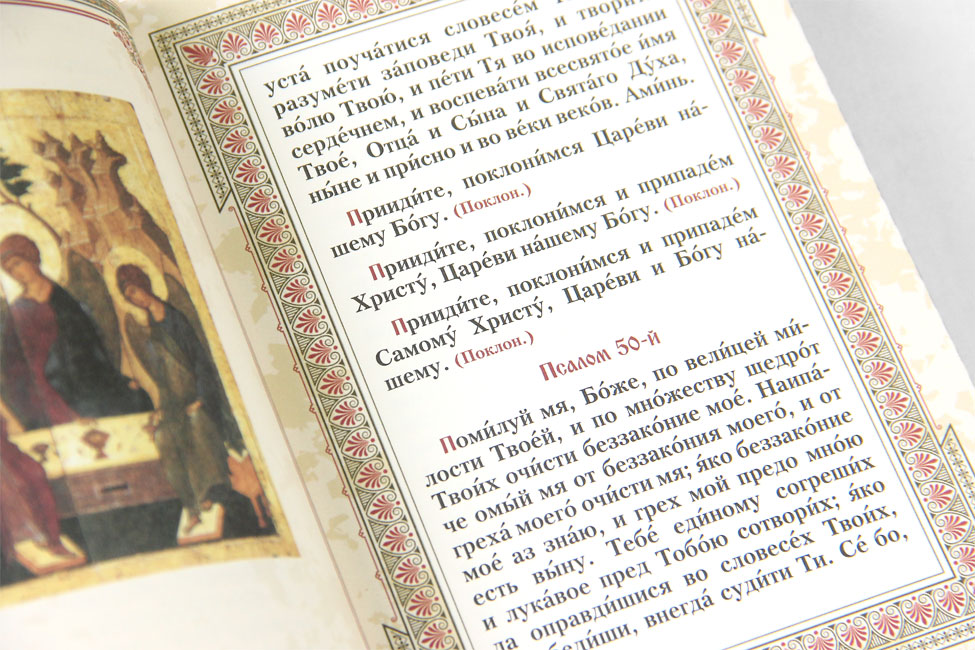 уста́ поуча́тися словесе́м
разуме́ти за́поведи Твоя́, и твори́ти
во́лю Твою́, и пе́ти Тя во испове́дании
серде́чнем, и воспева́ти всесвято́е и́мя
Твое́, Отца́ и Сы́на и Свята́го Ду́ха,
ны́не и при́сно и во ве́ки веко́в. Ами́нь.
Прииди́те, поклони́мся Царе́ви на́-
шему Бо́гу. (Поклон.)
Прииди́те, поклони́мся и припаде́м
Христу́, Царе́ви на́шему Бо́гу. (Поклон.)
Прииди́те, поклони́мся и припаде́м
Самому́ Христу́, Царе́ви и Бо́гу на́-
шему. (Поклон.)
Псалом 50-й
Поми́луй мя, Бо́же, по вели́цей ми́-
лости Твое́й, и по мно́жеству щедро́т
Твои́х очи́сти беззако́ние мое́. Наипа́-
че омы́й мя от беззако́ния моего́, и от
греха́ моего́ очи́сти мя; я́ко беззако́ние
мое́ аз зна́ю, и грех мой предо мно́ю
есть вы́ну. Тебе́ еди́ному согреши́х
и лука́вое пред Тобо́ю сотвори́х; я́ко
да оправди́шися во словесе́х Твои́х,
внегда́ суди́ти Ти. Се́ бо,